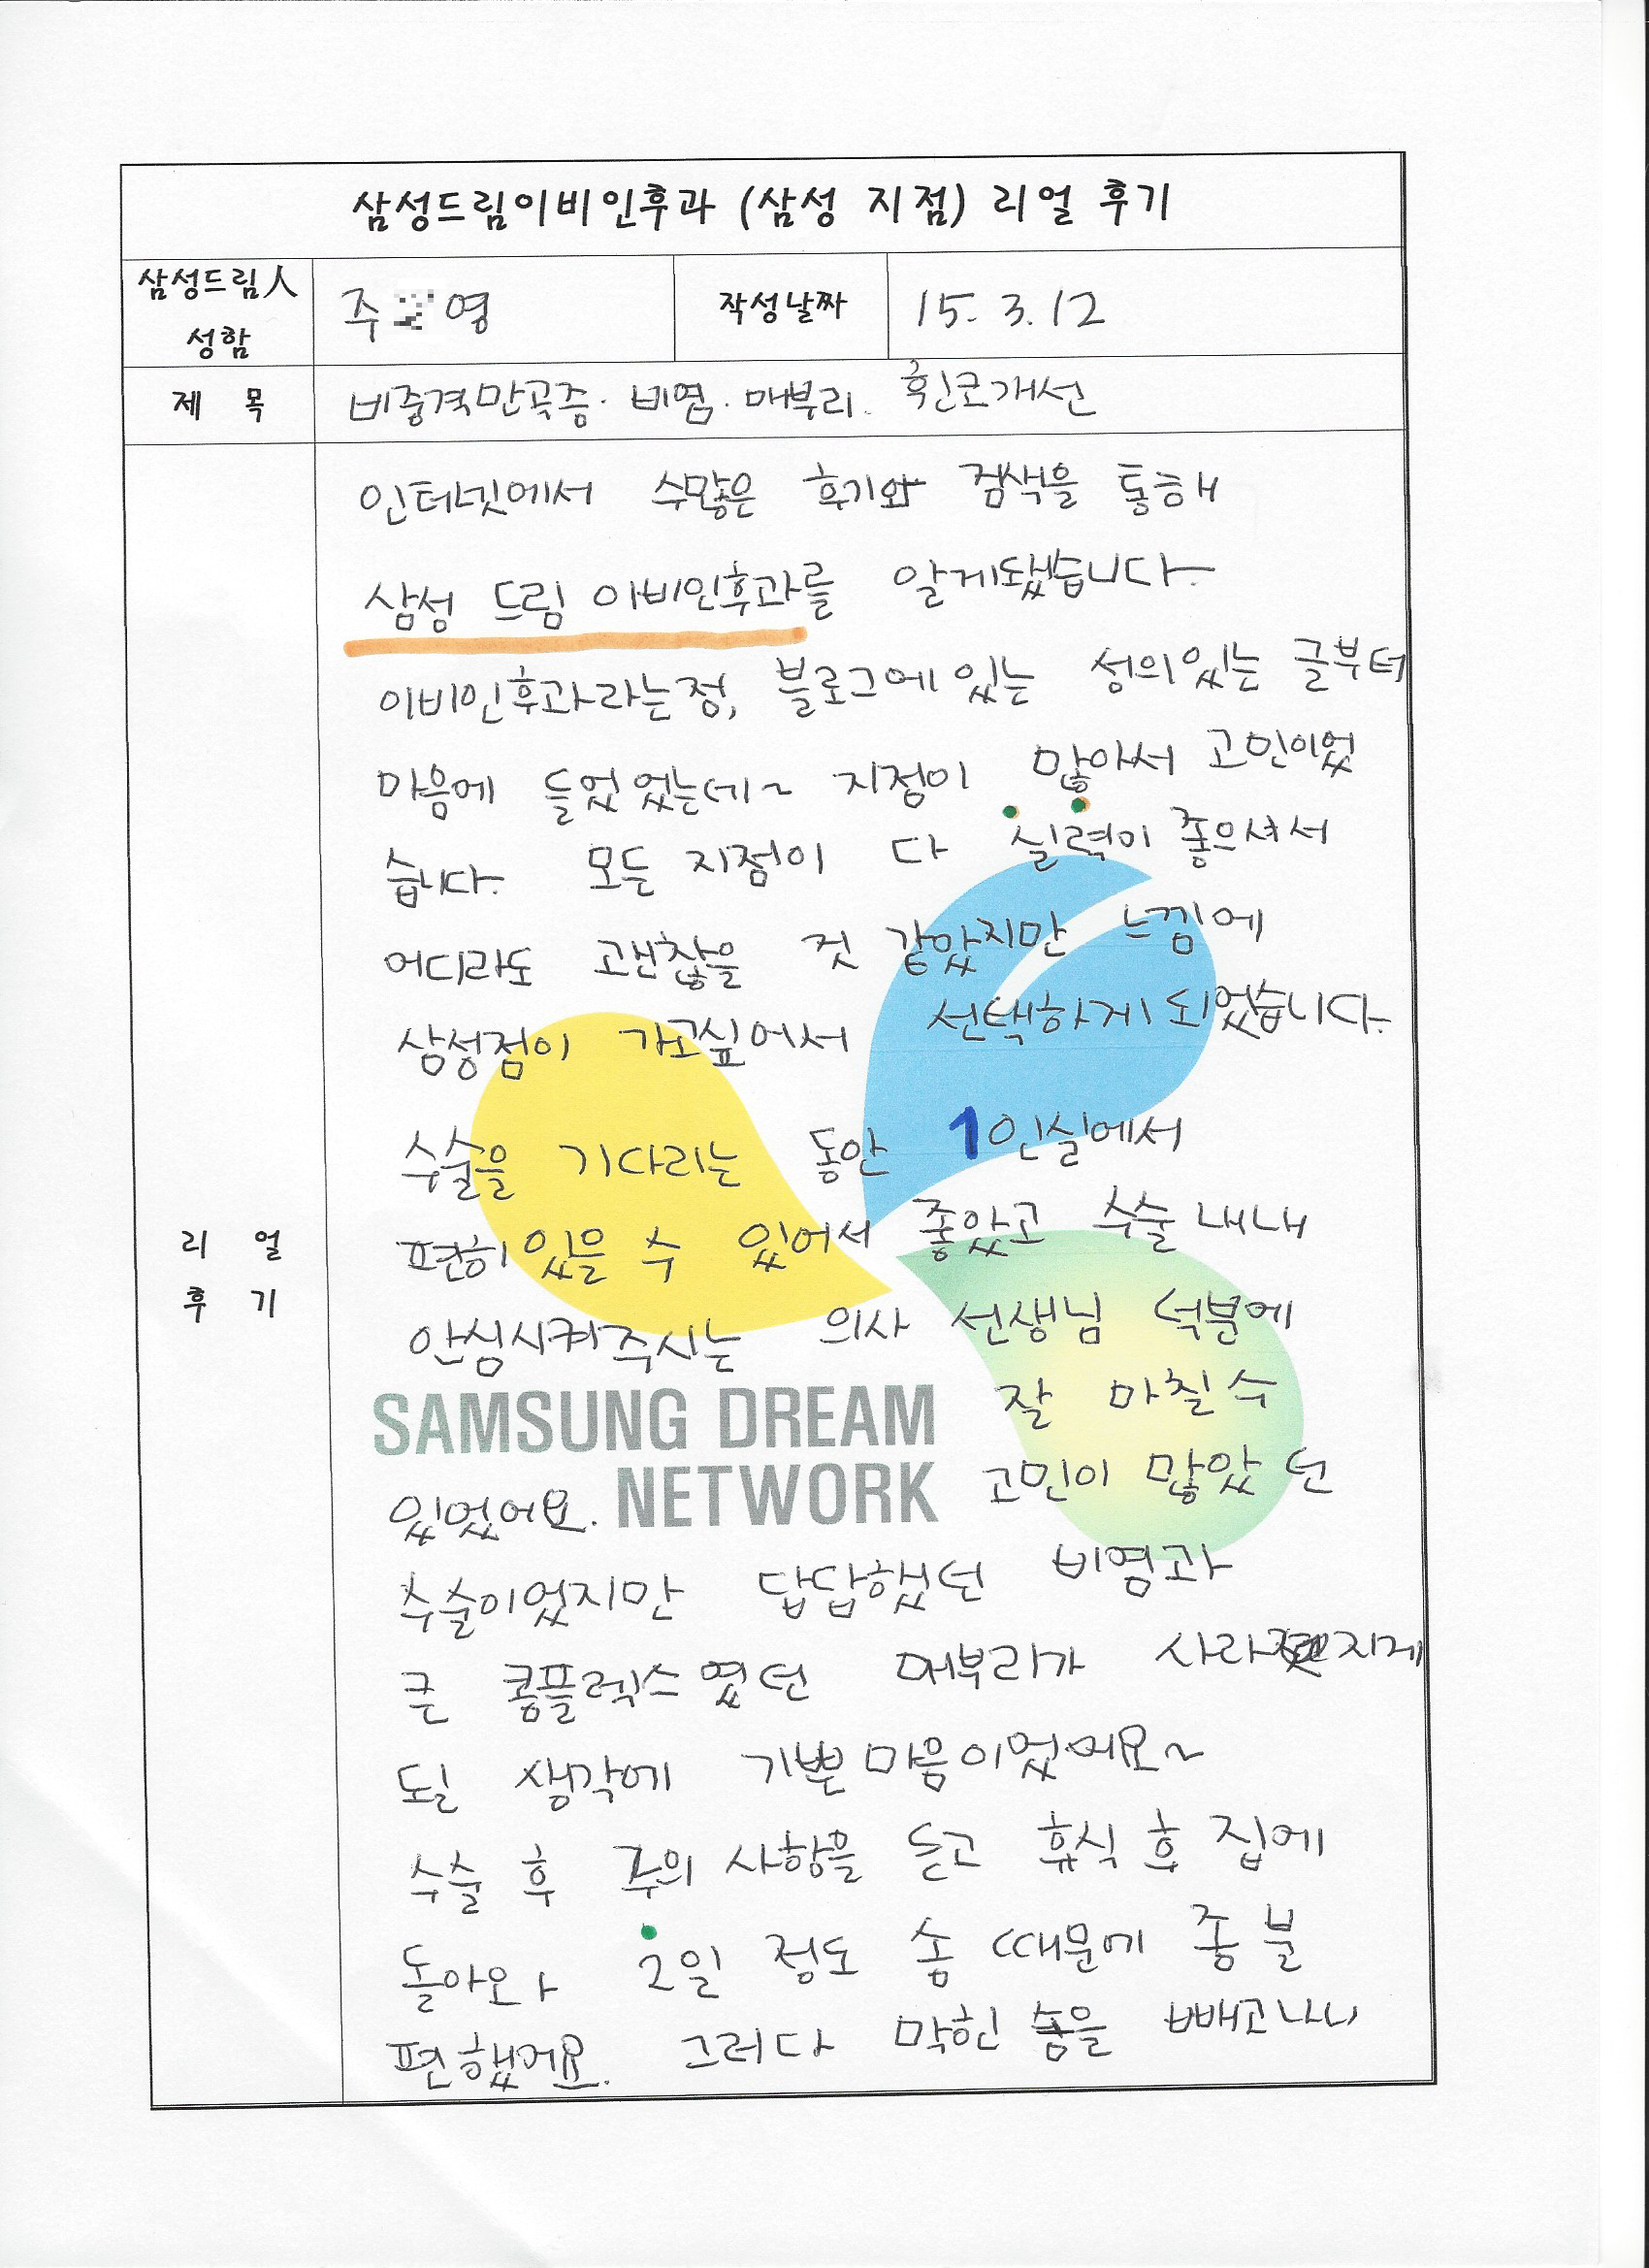 삼성드림이비인후과 (삼성 지점) 리얼 후기
삼성드림人 성함
주 영
작성날짜
15. 3. 12
제 목
비중격만곡증. 비염. 매부리. 휜코개선
리 얼
후 기
인터넷에서 수많은 후기와 검색을 통해
삼성 드림 이비인후과를 알게됐습니다.
이비인후과라는점, 블로그에 있는 성의있는 글부터
마음에 들었었는데~ 지점이 많아서 고민이었
습니다. 모든 지점이 다 실력이 좋으셔서
어디라도 괜찮을 것 같았지만 느낌에
삼성점이 가고싶어서 선택하게 되었습니다.
수술을 기다리는 동안 1인실에서
편히 있을 수 있어서 좋았고 수술 내내
안심시켜주시는 의사 선생님 덕분에
잘 마칠 수
있었어요. 고민이 많았던
SAMSUNG DREAM
NETWORK
수술이었지만 답답했던 비염과
큰 콤플렉스였던 매부리가 사라지게
될 생각에 기쁜 마음이었어요~
수술 후 주의 사항을 듣고 휴식 후 집에
돌아와 2일 정도 솜 때문에 좀 불
편했어요. 그러다 막힌 솜을 빼고나니